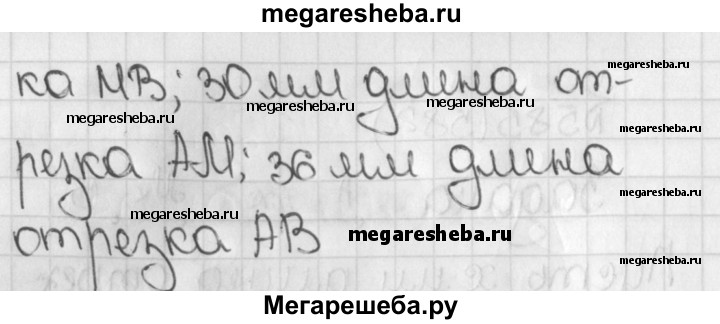 megaresheba.ru
ка МВ; 30 мм длина от-
megaresheba.ru
megaresheba.ru
megaresheba.ru
megaresheba.ru
резка АМ; 36 мм длина
megaresheba.ru
megaresheba.ru
megaresheba.ru
отрезка АВ
megaresheba.ru
Мегарешеба.ру